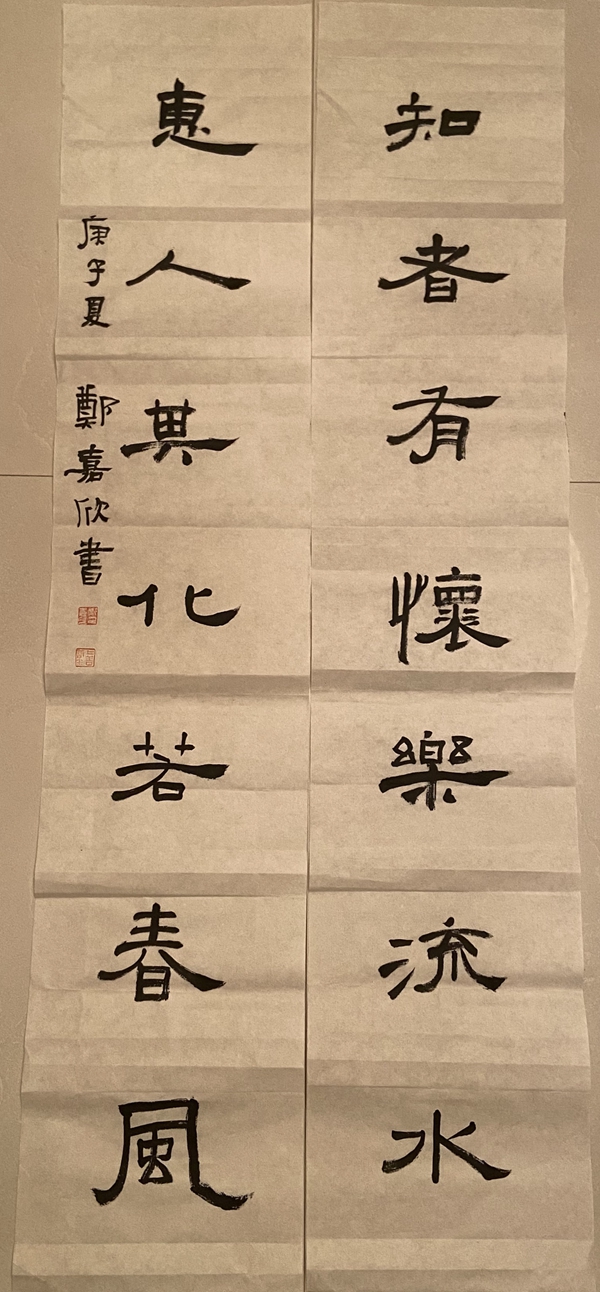 知者有懷樂流水
惠人其化若春風
庚子夏 鄭嘉欣書